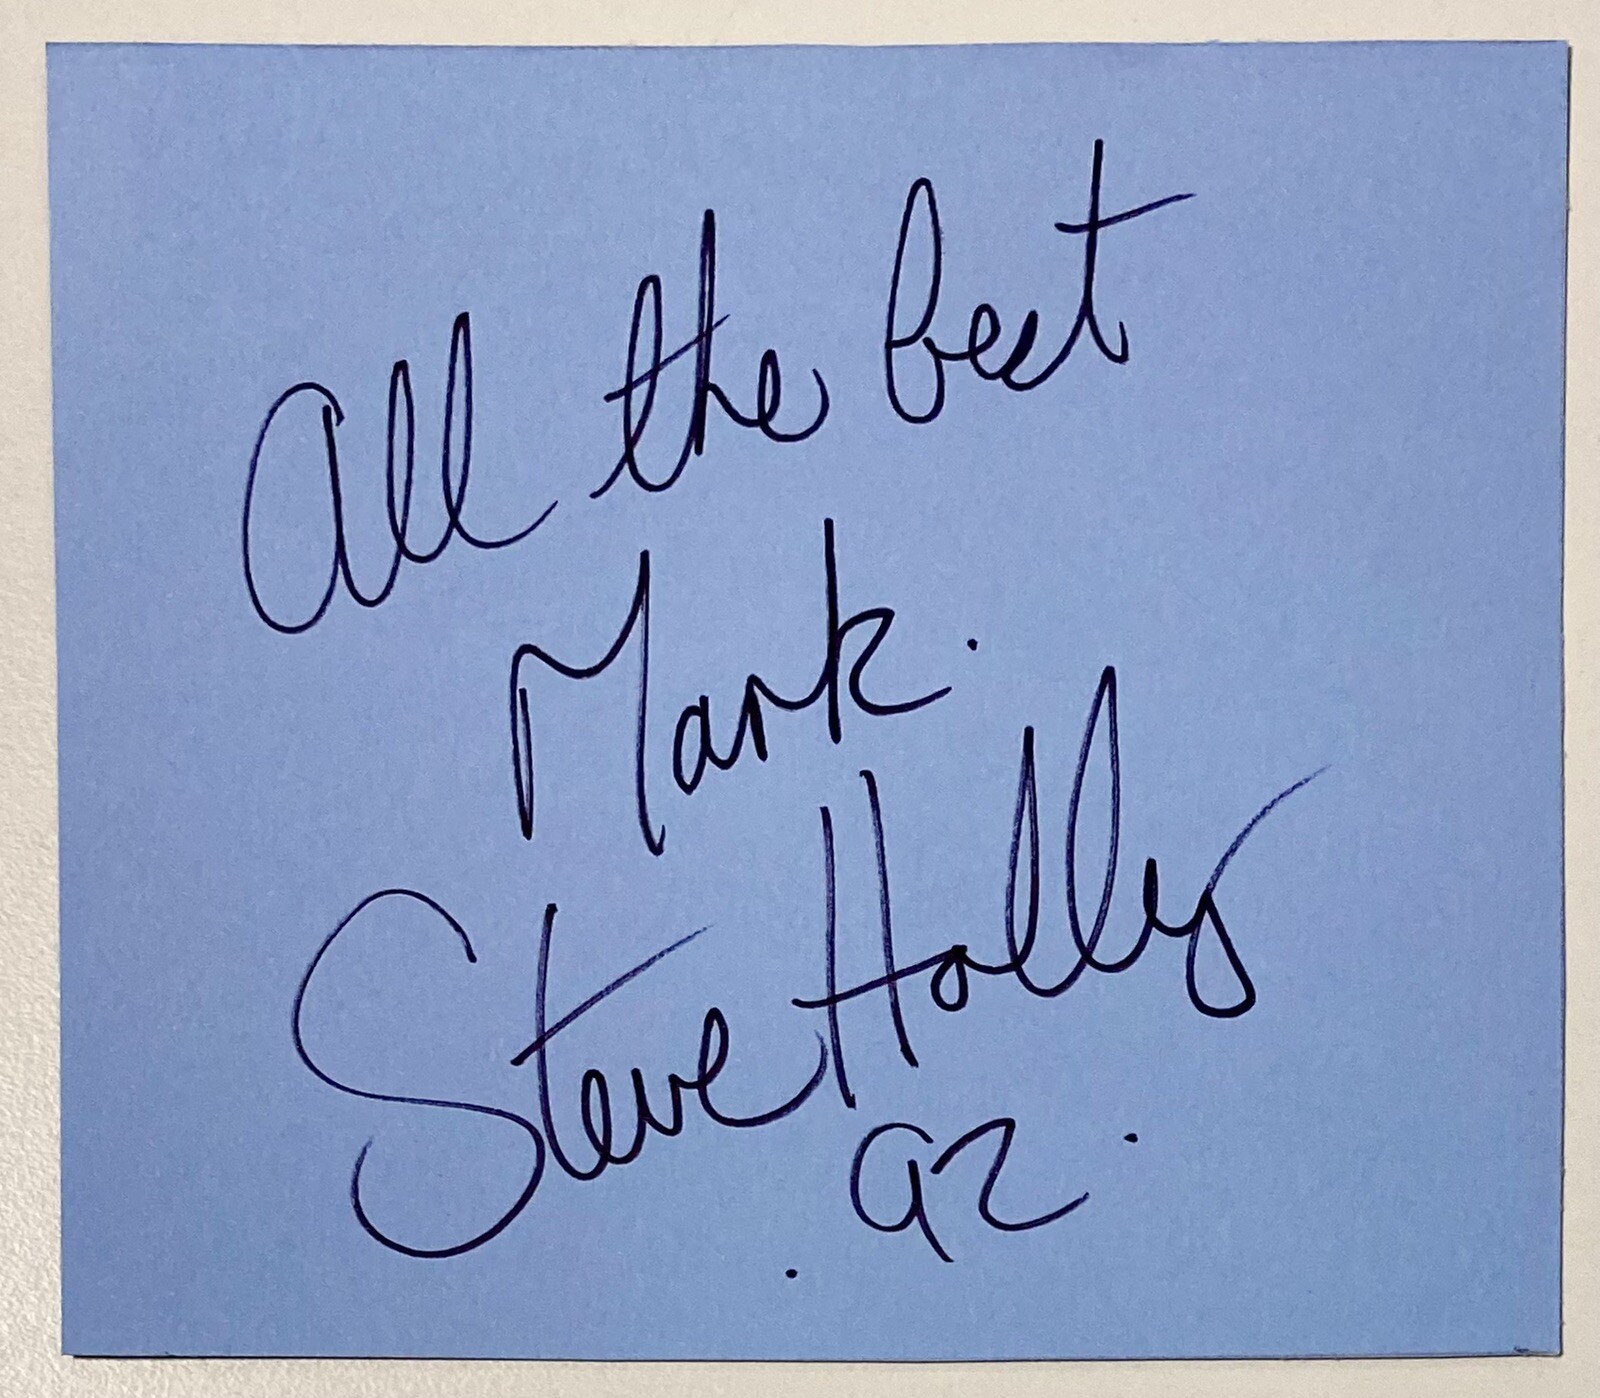 All the best
Mark.
Steve Holly
92.